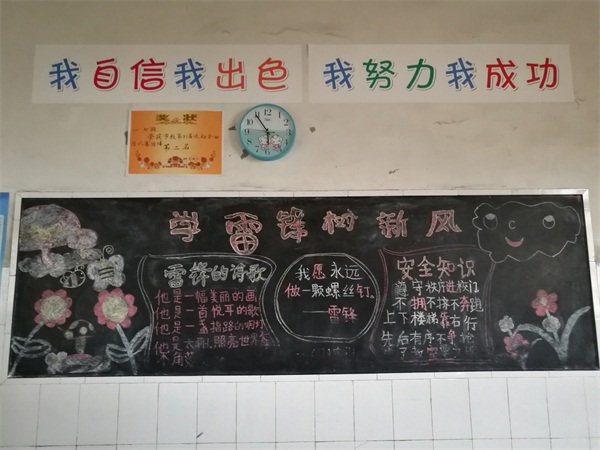 我自信我出色 我努力我成功
奖状
第三名
学雷锋树新风
雷锋的诗歌
他是一幅美丽的画
他是一首悦耳的歌
他是一盏指路的明灯
他是太阳照亮世界每
个角落
我愿永远
做一颗螺丝钉。
——雷锋
安全知识
遵守秩序进校门
不拥不挤不奔跑
上下楼梯靠右行
先后有序不争抢